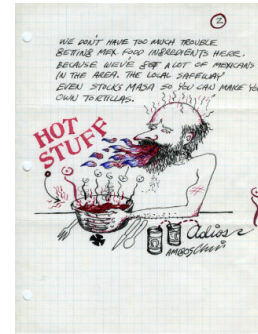 2
WE DON'T HAVE TOO MUCH TROUBLE
GETTING MEX. FOOD INGREDIENTS HERE.
BECAUSE WE'VE GOT A LOT OF MEXICANS
IN THE AREA. THE LOCAL SAFEWAY
EVEN STOCKS MASA SO YOU CAN MAKE YOU
OWN TORTILLAS.
HOT
STUFF
adios
AMIGOS